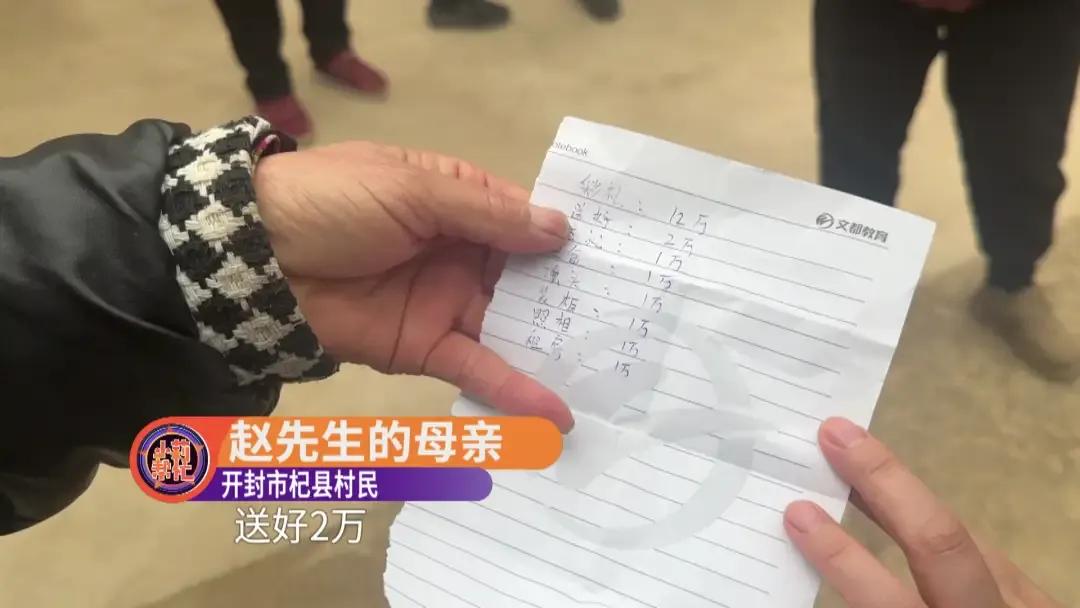 otebook
文都教育
彩礼：12万
送好：2万
：1万
：1万
：1万
照相：1万
：1万
小莉帮忙
赵先生的母亲
开封市杞县村民
送好2万